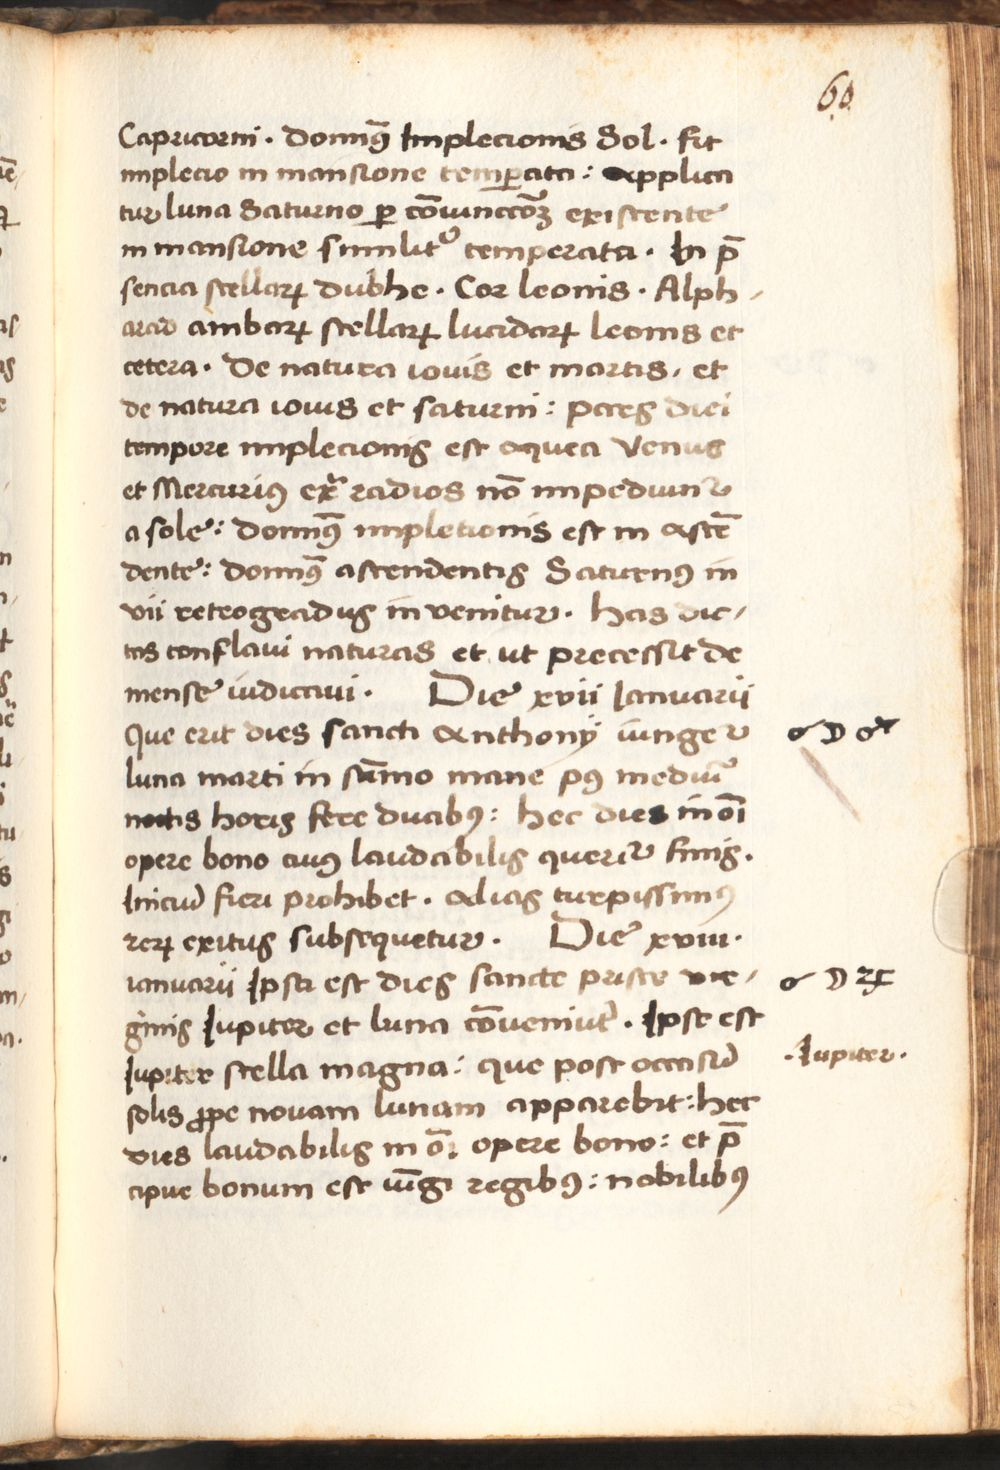 60
Capricorni. Domin9 Implecionis Sol. Fit
implecio in mansione temꝑata: Applica
tur luna Saturno ꝑ cōiunccōꝫ existente
in mansione similit᷑ temperata. In p̄
sencia stellarꝝ dubhe. Cor leonis. Alph-
arad ambarꝝ stellarꝝ lucidarꝝ leonis et
cetera. De natura iovis et martis, et
de natura iovis et saturni: Pars diei
tempore implecionis est aquea Venus
et Mercurius ex̄ radios nō impediunt᷑
a sole: domin9 impletionis est in Ascē
dente: domin9 ascendentis Saturn9 in
vii retrogradus invenitur. Has dic-
tas conflavi naturas et ut precessit de
mense iudicavi. Die xvii Ianuarii
Que erit dies sancti Anthonij iunget᷑
luna marti in sūmo mane p9 mediū
noctis horis fere duab9: hec dies in oī
opere bono cui9 laudabilis querit᷑ finis.
Iniciū fieri prohibet. Alias turpissim9
rerꝝ exitus subsequetur. Die xviii.
ianuarii Ipsa est dies sancte prisce vir-
ginis Iupiter et luna cōveniūt. Ipse est
Iupiter stella magna: que post occasū
solis ꝓpe novam lunam apparebit: hec
dies laudabilis in ōi opere bono: et p̄
cipue bonum est iūgi regib9: nobilib9
☌ ☽ ♂
☌ ☽ ♃
.Iupiter.